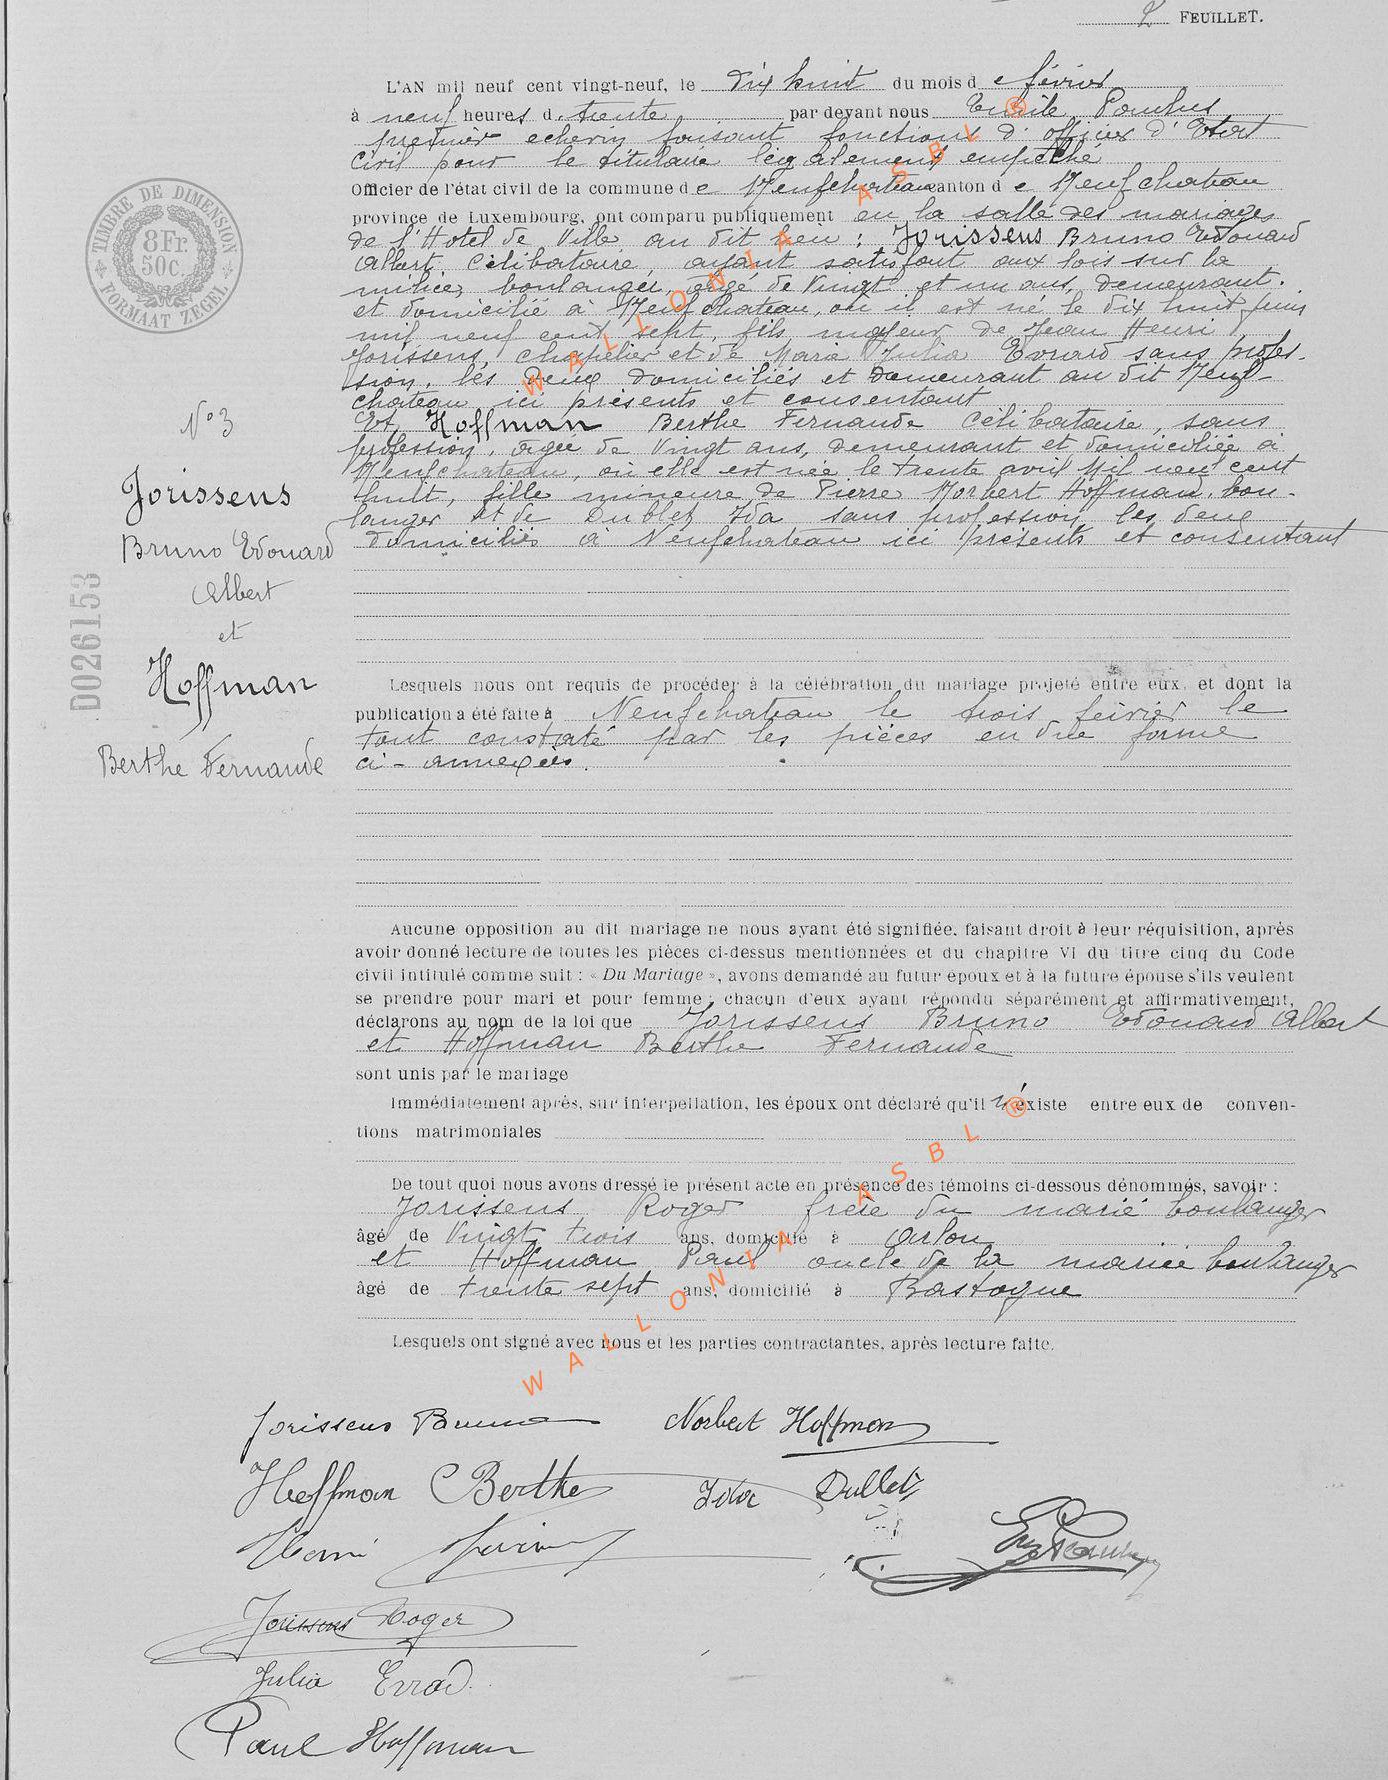 2 FEUILLET.
L'AN mil neuf cent vingt-neuf, le dix huit du mois de février
à neuf heures d. trente par devant nous Emile
premier echevin faisant fonctions d'officier d'Etat
Civil pour le titulaire légalement empêché
Officier de l'état civil de la commune de Neufchateau canton de Neufchateau
province de Luxembourg, ont comparu publiquement en la salle des mariages
de l'Hotel de Ville au dit lieu : Jorissens Bruno Edouard
Albert, Célibataire, ayant satisfait aux lois sur la
milice, boulanger, agé de Vingt et un ans, demeurant
et domicilié à Neufchateau, où il est né le dix huit juin
mil neuf cent sept, fils majeur de Jean Henri
Jorissens, Chapelier et de Marie Julia Evrard sans profes-
sion, les deux domiciliés et demeurant au dit Neuf-
chateau ici présents et consentant
Et Hoffman Berthe Fernande Célibataire, sans
profession, agée de Vingt ans, demeurant et domiciliée à
Neufchateau, où elle est née le trente avril Mil neuf cent
huit, fille mineure de Pierre Norbert Hoffman, bou-
langer et de Dublet Ida sans profession les deux
domiciliés à Neufchateau ici présents et consentant
TIMBRE DE DIMENSION
8Fr.
50c.
FORMAAT ZEGEL
N° 3
Jorissens
Bruno Edouard
Albert
et
Hoffman
Berthe Fernande
D026153
Lesquels nous ont requis de procéder à la célébration du mariage projeté entre eux, et dont la
publication a été faite à Neufchateau le trois février le
tout constaté par les pièces en due forme
ci-annexées.
Aucune opposition au dit mariage ne nous ayant été signifiée, faisant droit à leur réquisition, après
avoir donné lecture de toutes les pièces ci-dessus mentionnées et du chapitre VI du titre cinq du Code
civil intitulé comme suit : « Du Mariage », avons demandé au futur époux et à la future épouse s'ils veulent
se prendre pour mari et pour femme ; chacun d'eux ayant répondu séparément et affirmativement,
déclarons au nom de la loi que Jorissens Bruno Edouard Albert
et Hoffman Berthe Fernande
sont unis par le mariage
Immédiatement après, sur interpellation, les époux ont déclaré qu'il n'existe entre eux de conven-
tions matrimoniales
De tout quoi nous avons dressé le présent acte en présence des témoins ci-dessous dénommés, savoir :
Jorissens Roger frère du marié boulanger
âgé de Vingt trois ans, domicilié à Arlon
et Hoffman Paul oncle de la mariée boulanger
âgé de trente sept ans, domicilié à Bastogne
Lesquels ont signé avec nous et les parties contractantes, après lecture faite.
Jorissens Bruno Norbert Hoffman
Hoffman Berthe Ida Dullet
Henri
Jorissens Roger
Julia Evrad.
Paul Hoffman
WALLONIA ASBL ®
WALLONIA ASBL ®